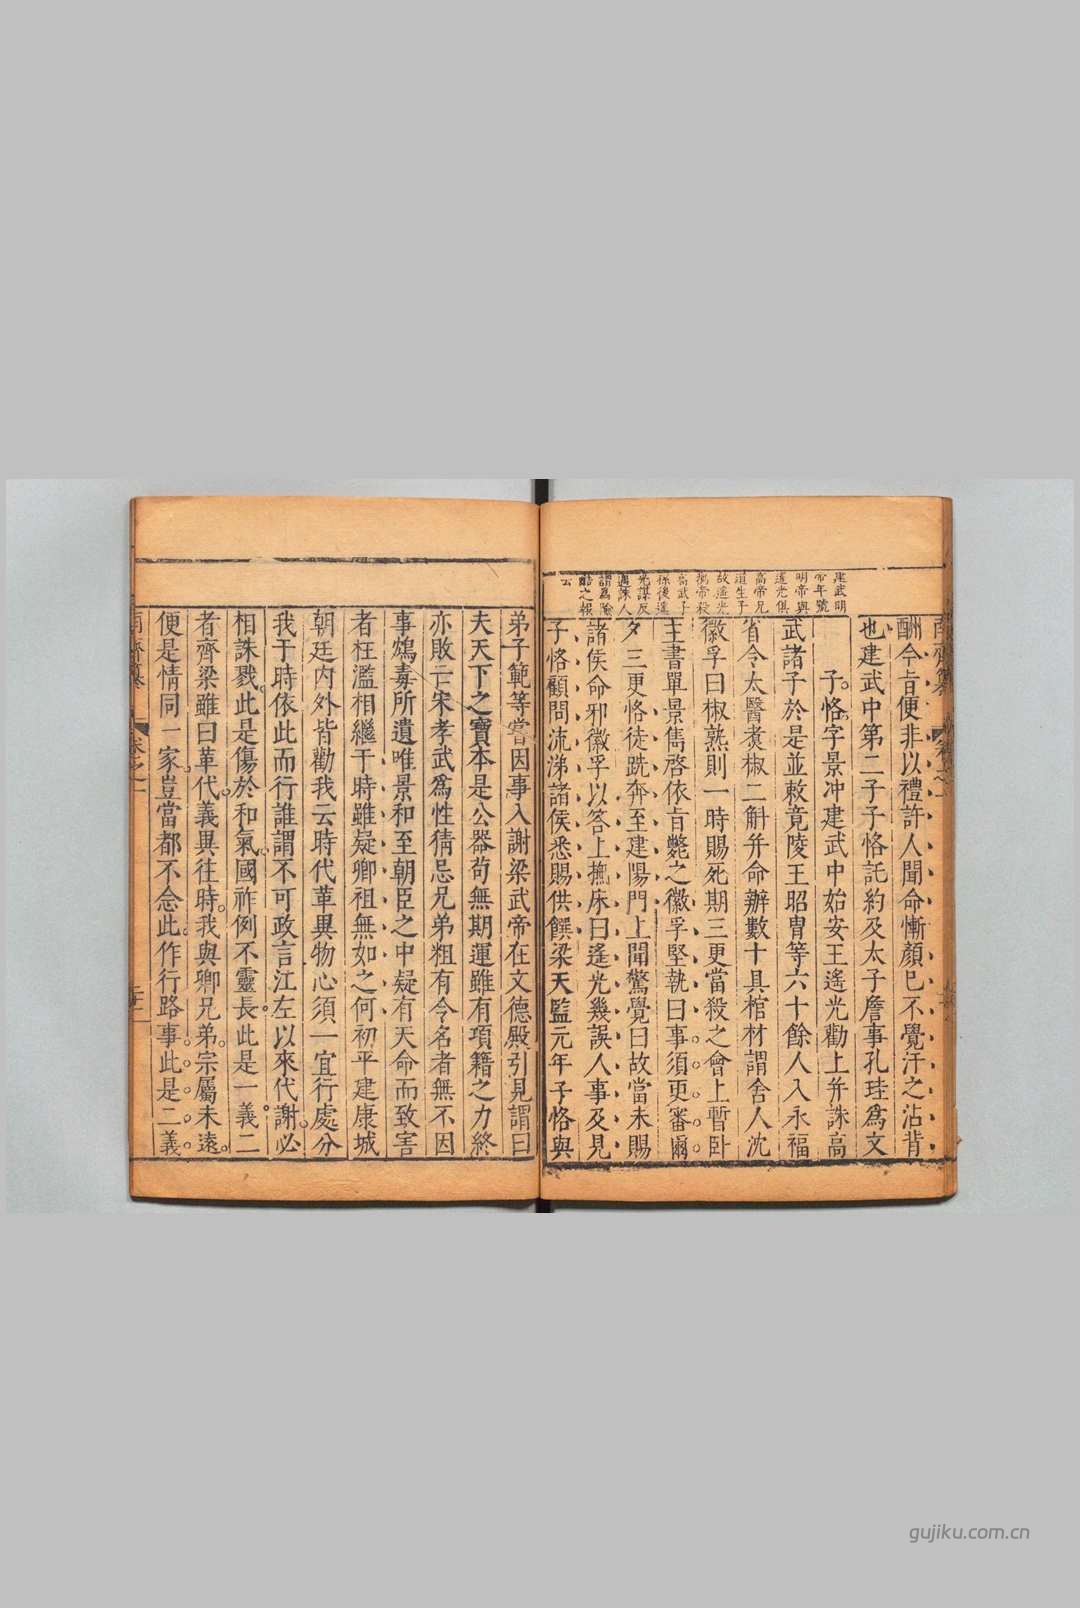 建武明
帝年號
明帝與
遙光俱
高帝兄
道生子
故遙光
勸帝殺
高武子
孫後遙
光謀反
遇誅人
謂為陰
酷之報
云
酬今旨便非以禮許人聞命慚顏已不覺汗之沾背
也建武中第二子子恪託約及太子詹事孔珪爲文
子恪字景冲建武中始安王遙光勸上并誅高
武諸子於是並敕竟陵王昭胄等六十餘人入永福
省令太醫煮椒二斛并命辦數十具棺材謂舍人沈
徽孚曰椒熟則一時賜死期三更當殺之會上暫卧
主書單景雋啓依旨斃之徽孚堅執曰事須更審爾
夕三更恪徒跣奔至建陽門上聞驚覺曰故當未賜
諸侯命邪徽孚以答上撫床曰遙光幾誤人事及見
子恪顧問流涕諸侯悉賜供饌梁天監元年子恪與
弟子範等嘗因事入謝梁武帝在文德殿引見謂曰
夫天下之寶本是公器苟無期運雖有項籍之力終
亦敗亡宋孝武爲性猜忌兄弟粗有令名者無不因
事鴆毒所遺唯景和至朝臣之中疑有天命而致害
者枉濫相繼于時雖疑卿祖無如之何初平建康城
朝廷内外皆勸我云時代革異物心須一宜行處分
我于時依此而行誰謂不可政言江左以來代謝必
相誅戮此是傷於和氣國祚例不靈長此是一義二
者齊梁雖曰革代義異往時我與卿兄弟宗屬未遠
便是情同一家豈當都不念此作行路事此是二義
gujiku.com.cn